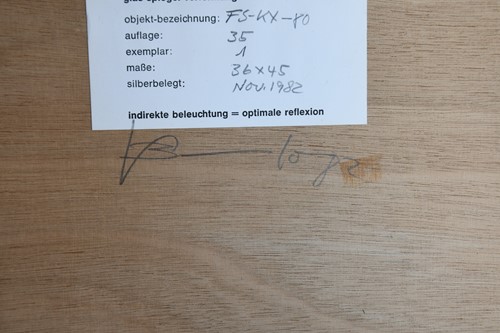 objekt-bezeichnung: FS-KX-80
auflage: 35
exemplar: 1
maße: 36 x 45
silberbelegt: Nov. 1982
indirekte beleuchtung = optimale reflexion